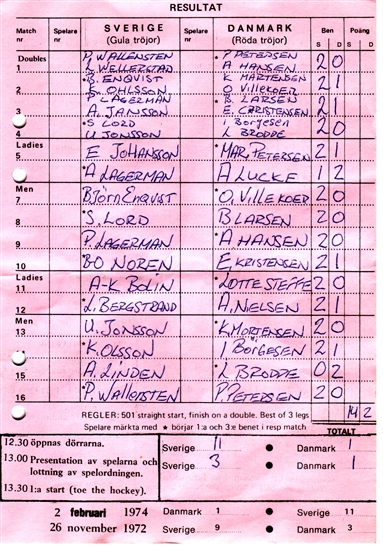 RESULTAT
Match nr Spelare nr SVERIGE (Gula tröjor) Spelare nr DANMARK (Röda tröjor) Ben S D Poäng S D
Doubles
1 P. WALLENSTEN *P PETERSEN 2 0
L WELLERSTAD A HANSEN
2 *B. ENQVIST K MARTENSEN 2 1
K. OHLSSON O VILLEKOER
3 P LAGERMAN *B. LARSEN 2 1
A. JANSSON E. CHRISTENSEN
4 *S LORD Borgesen 2 0
U JONSSON L BRODDE
Ladies
5 E JOHANSSON *MAR. PETERSEN 2 1
6 *A LAGERMAN A LUCKE 1 2
Men
7 Björn Enqvist *O. VilleKOER 2 0
8 *S. LORD B LARSEN 2 0
9 P. LAGERMAN *A HANSEN 2 0
10 *BO NOREN E. KRISTENSEN 2 1
Ladies
11 A-K BOLIN *LOTTE STEFFE 2 0
12 *L. BERGSTRAND A. NIELSEN 2 1
Men
13 U. JONSSON *K MORTENSEN 2 0
14 *K. OLSSON I BÖRGESEN 2 1
15 A. LINDEN *L BRODDE 0 2
16 *P. Wallensten P. PETERSEN 2 0
REGLER: 501 straight start, finish on a double. Best of 3 legs 14 2
Spelare märkta med ★ börjar 1:a och 3:e benet i resp match TOTALT
12.30 öppnas dörrarna. Sverige 11 ● Danmark 1
13.00 Presentation av spelarna och lottning av spelordningen. Sverige 3 ● Danmark 1
13.30 1:a start (toe the hockey). ●
2 februari 1974 Danmark 1 ● Sverige 11
26 november 1972 Sverige 9 ● Danmark 3